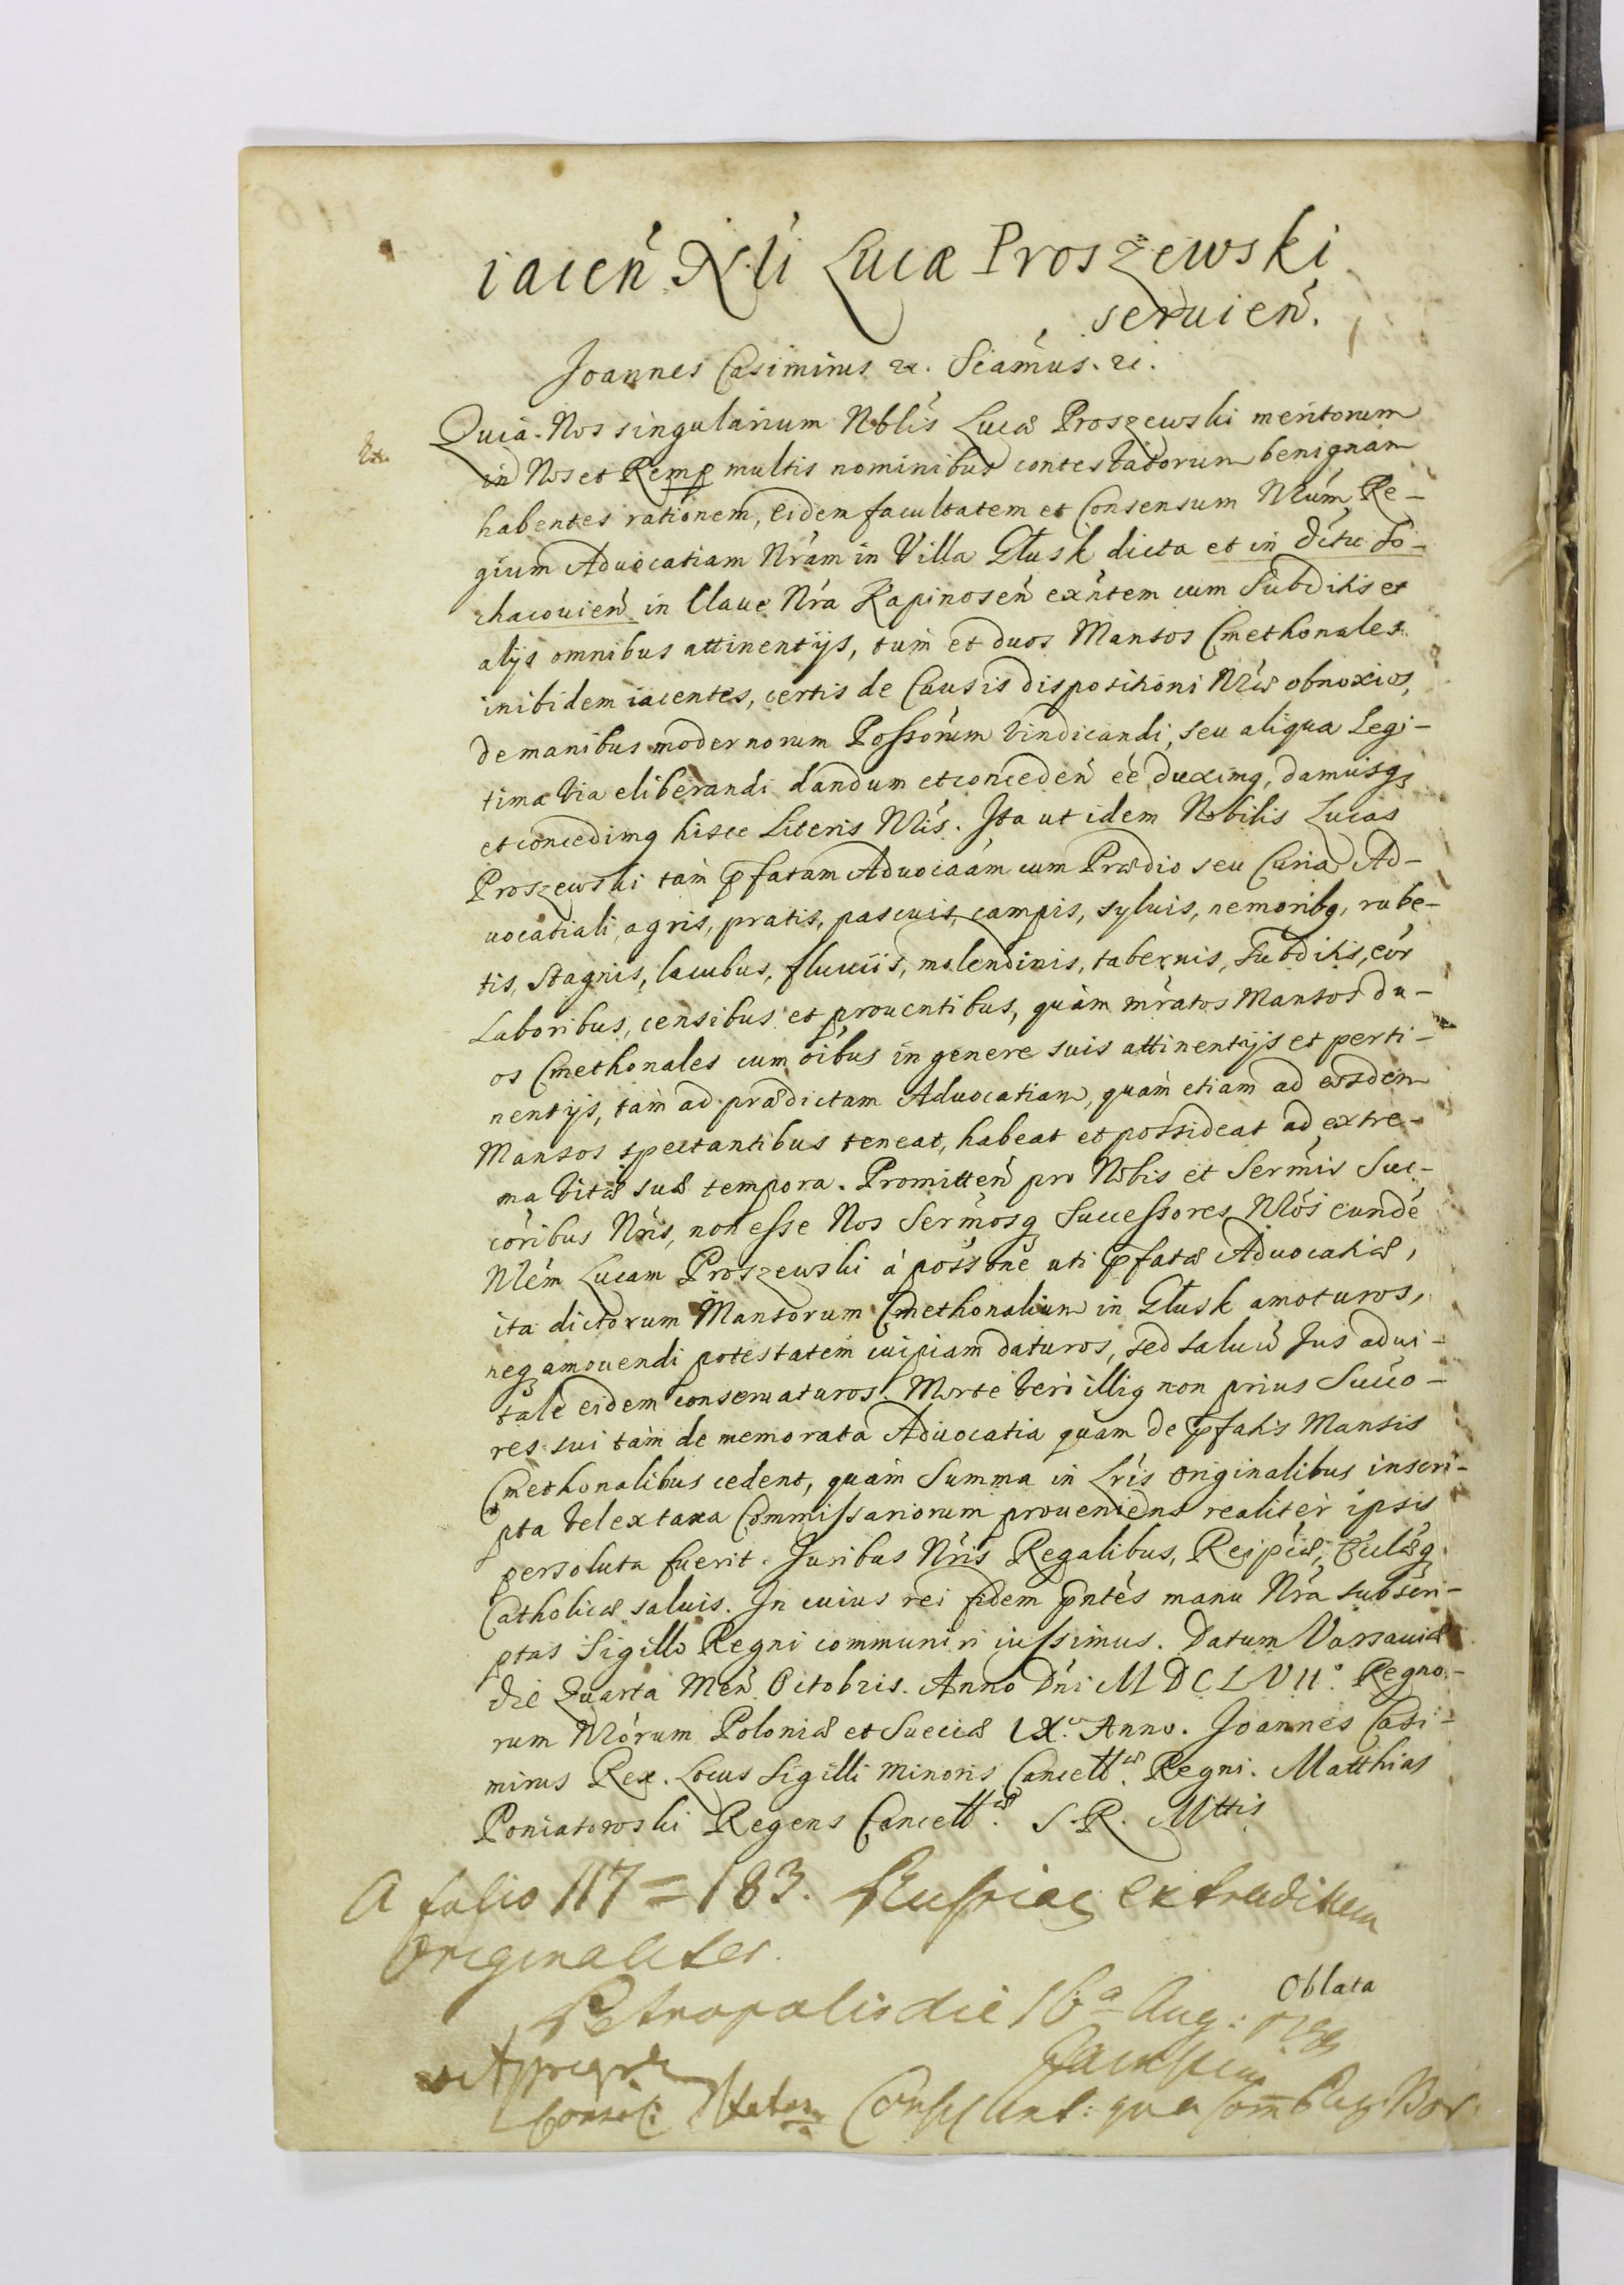 iacen̄ N͂li Lucæ Proszewski
seruien̄.
Joannes Casimirus &c. Sciam̄us. &c.
Quia Nos singularium Nobl̄is Lucæ Proszewski meritorum
in Nos et Remp multis nominibus contestatorum benignam
habentes rationem, eidem facultatem et Consensum Nr̄um Re-
gium Aduocatiam Nr̄am in Villa Głusk dicta et in
in Claue Nr̄a Rapinosen̄ exn̄tem cum Subditis et
alijs omnibus attinentijs, tum et duos Mansos Cmethonales
inibidem iacentes, certis de Causis dispositioni Nr̄æ obnoxios,
de manibus modernorum Possōrum vindicandi, seu aliqua Legi-
tima via eliberandi dandum et conceden̄ eē duximq, damusqȝ
et concedimq hisce Literis Nr̄is. Ita ut idem Nobilis Lucas
Proszewski tam p̄fatam Aduocaām cum Prædio seu Curia Ad-
uocatiali, agris, pratis, pascuis, campis, syluis, nemoribq, rube-
tis, stagnis, lacubus, fluuiis, molendinis, tabernis, Subditis, eōr
Laboribus, censibus et prouentibus, quàm mr̄atos Mansos du-
os Cmethonales cum oībus in genere suis attinentijs et perti-
nentijs, tam ad prædictam Aduocatiam, quàm etiam ad eosdem
Mansos spectantibus teneat, habeat et possideat ad extre-
ma vitæ suæ tempora. Promitten̄ pro Nobis et Serm̄is Suc-
cōribus Nr̄is, non esse Nos Serm̄osq Successores Nr̄os eundē
Nl̄em Lucam Proszewski à possōne uti p̄fatæ Aduocatiæ,
ita dictorum Mansorum Cmethonalium in Głusk amoturos,
neqȝ amouendi potestatem cuipiam daturos, sed saluū Jus adui-
tale eidem conseruaturos. Morte verò illiq non prius Succo-
res sui tàm de memorata Aduocatia quam de p̄fatis Mansis
Cmethonalibus cedent, quàm Summa in Lr̄is originalibus inscri-
pta vel ex taxa Commissariorum proueniens realitèr ipsis
persoluta fuerit. Juribus Nr̄is Regalibus, Reipc̄æ, Ec̄clæq
Catholicæ saluis. In cuius rei fidem pn̄tes manu Nr̄a subscri-
ptas Sigillo Regni communiri iussimus. Datum Varsauiæ
die Quarta Men̄ Octobris. Anno Dn̄i MDCLVII°. Regno-
rum Nr̄orum Poloniæ et Sueciæ IX.° Anno. Joannes Casi-
mirus Rex. Locus Sigilli Minoris Cancellæ. Regni. Matthias
Poniatowski Regens Cancellæ. S. R. Mttis
A folio 117 = 183. Russiae extraditum
Originaliter.
Petropolis die 16ª Aug:
Oblata